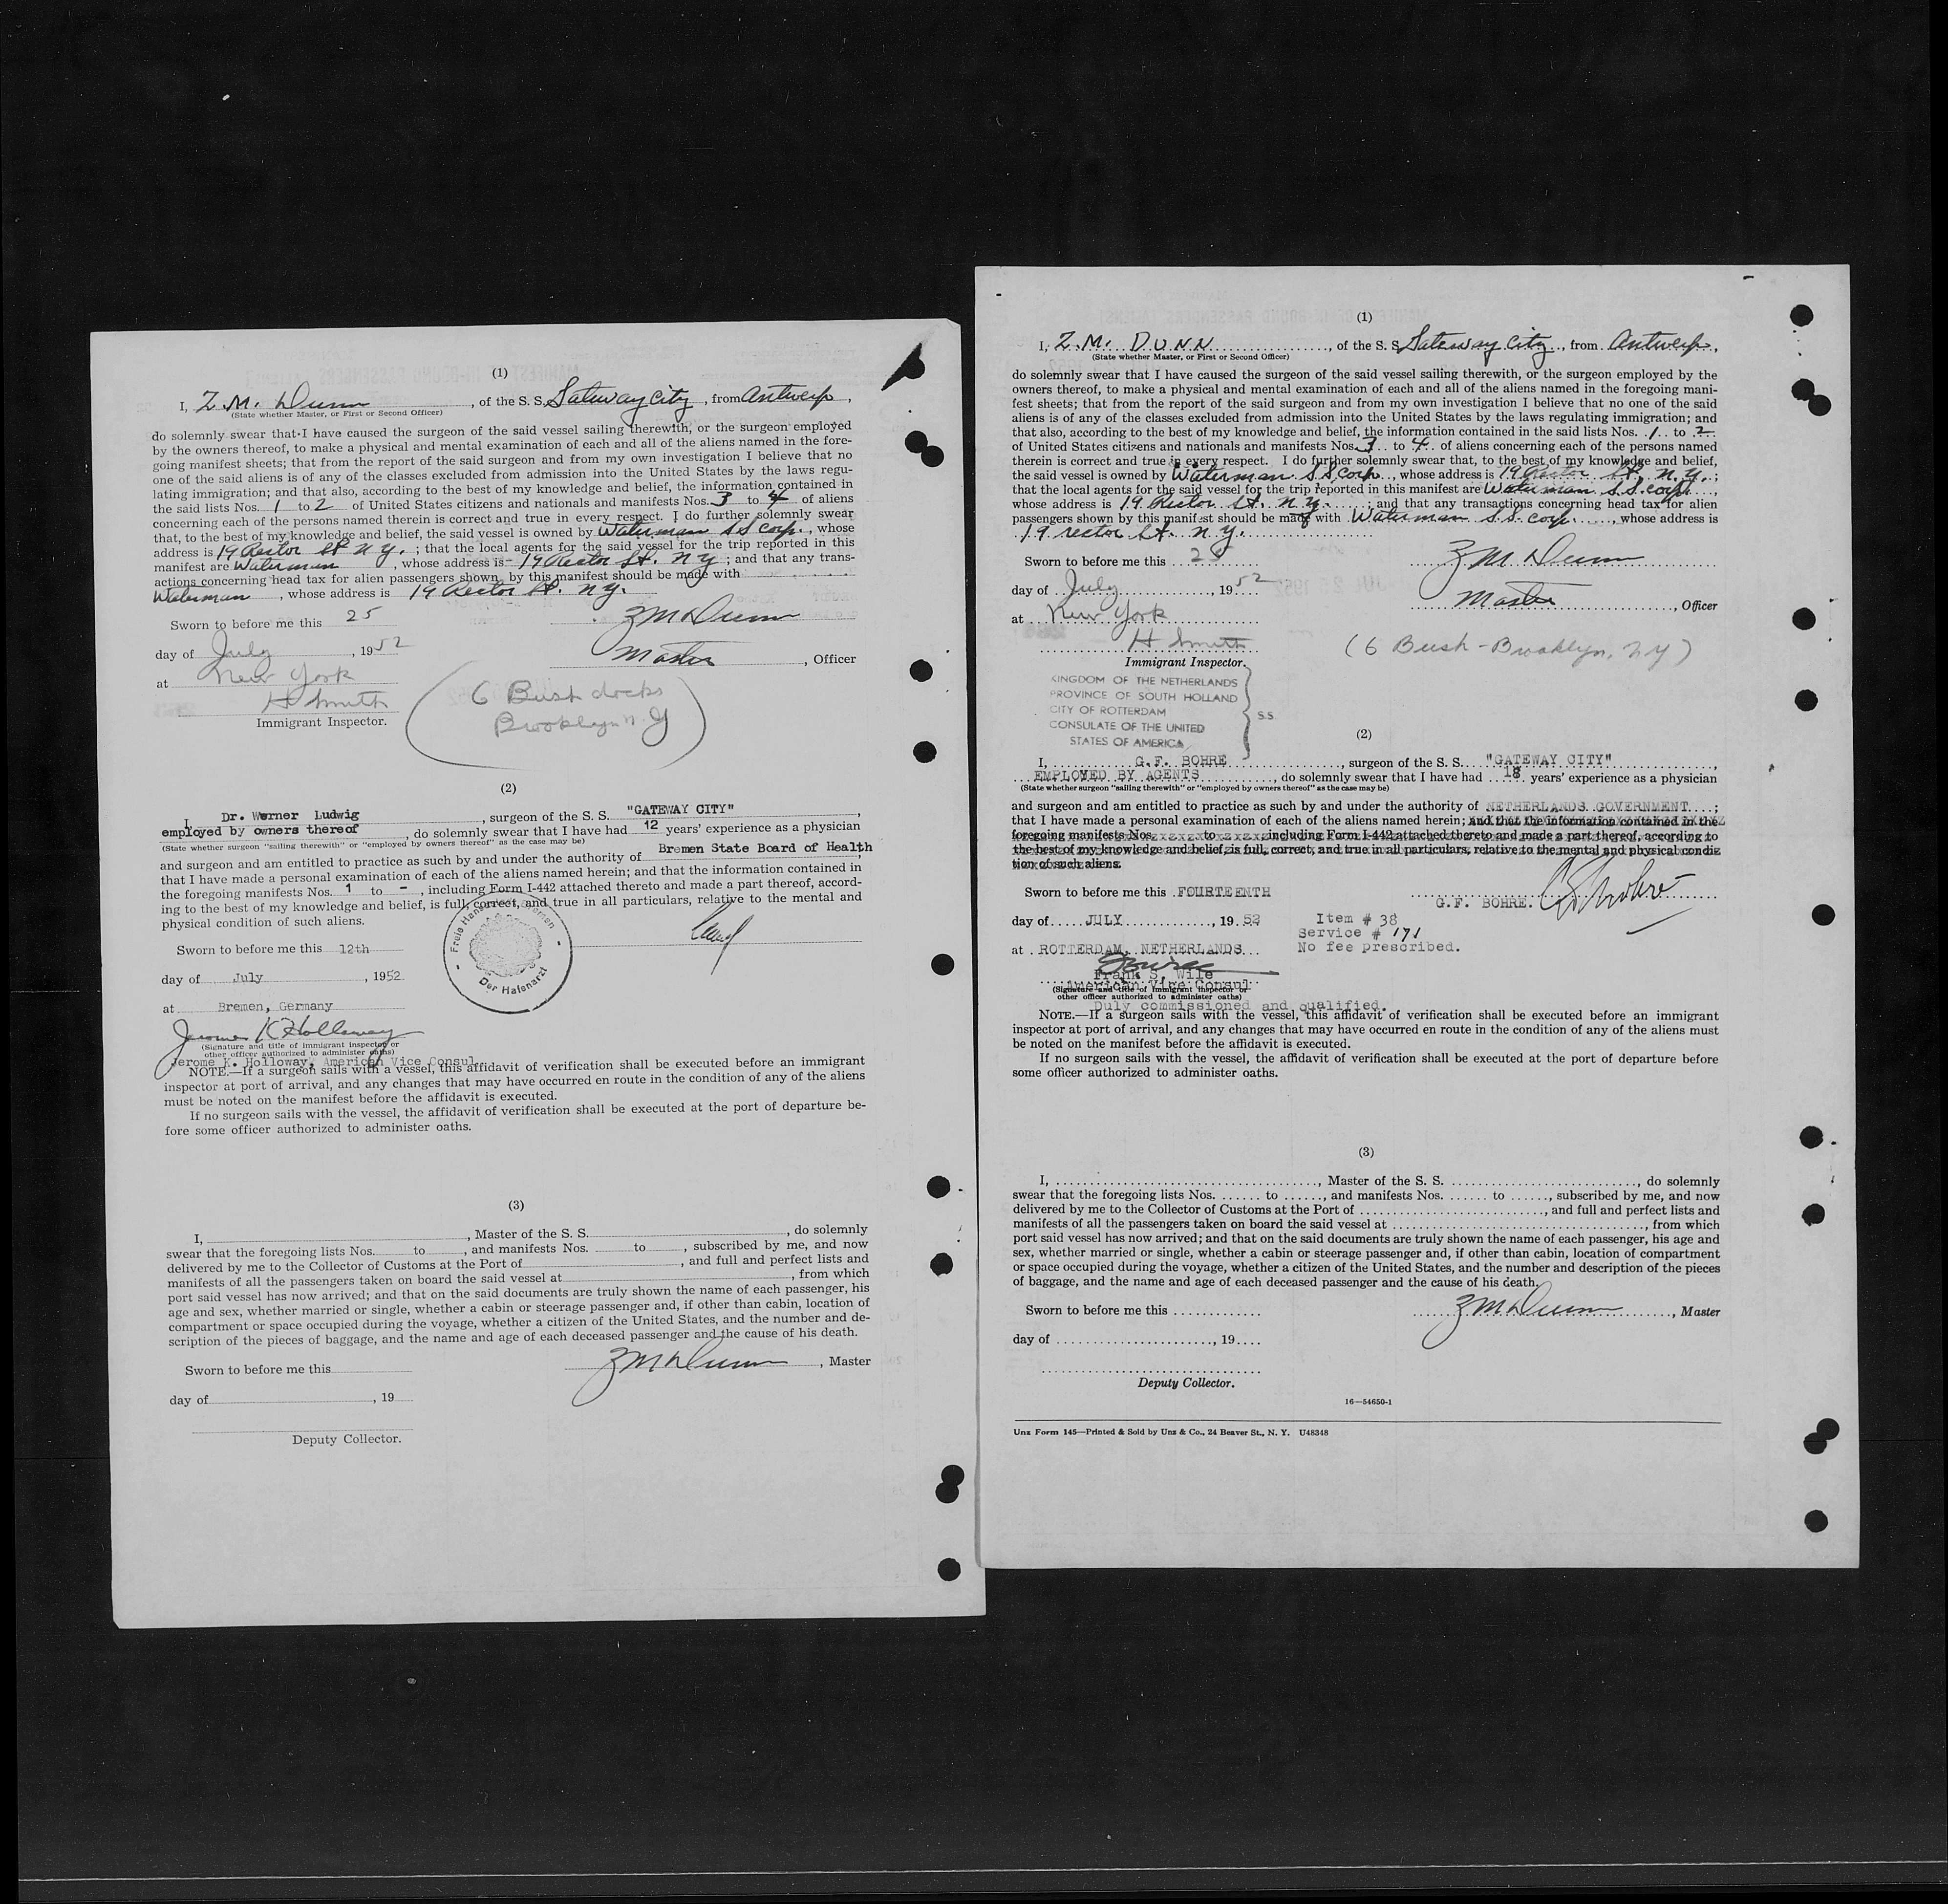 (1)
I, Z.M. Dunn, of the S. S. Gateway City, from Antwerp,
(State whether Master, or First or Second Officer)
do solemnly swear that I have caused the surgeon of the said vessel sailing therewith, or the surgeon employed
by the owners thereof, to make a physical and mental examination of each and all of the aliens named in the fore-
going manifest sheets; that from the report of the said surgeon and from my own investigation I believe that no
one of the said aliens is of any of the classes excluded from admission into the United States by the laws regu-
lating immigration; and that also, according to the best of my knowledge and belief, the information contained in
the said lists Nos. 1 to 2 of United States citizens and nationals and manifests Nos. 3 to 4 of aliens
concerning each of the persons named therein is correct and true in every respect. I do further solemnly swear
that, to the best of my knowledge and belief, the said vessel is owned by Waterman S S Corp., whose
address is 19 Rector St N Y.; that the local agents for the said vessel for the trip reported in this
manifest are Waterman, whose address is - 19 Rector St. N Y; and that any trans-
actions concerning head tax for alien passengers shown by this manifest should be made with
Waterman, whose address is 19 Rector St. N Y.
Sworn to before me this 25
ZM Dunn
day of July, 1952
Master, Officer
at New York
H Smith
Immigrant Inspector.
(6 Bush docks
Brooklyn N. Y)
(2)
I, Dr. Werner Ludwig, surgeon of the S. S. "GATEWAY CITY",
employed by owners thereof, do solemnly swear that I have had 12 years' experience as a physician
(State whether surgeon "sailing therewith" or "employed by owners thereof" as the case may be)
and surgeon and am entitled to practice as such by and under the authority of Bremen State Board of Health;
that I have made a personal examination of each of the aliens named herein; and that the information contained in
the foregoing manifests Nos. 1 to -, including Form I-442 attached thereto and made a part thereof, accord-
ing to the best of my knowledge and belief, is full, correct, and true in all particulars, relative to the mental and
physical condition of such aliens.
Sworn to before me this 12th
day of July, 1952.
Der Hafenarzt
at Bremen, Germany
Jerome K Holloway
(Signature and title of immigrant inspector or
other officer authorized to administer oaths)
Jerome K. Holloway, American Vice Consul
NOTE.—If a surgeon sails with a vessel, this affidavit of verification shall be executed before an immigrant
inspector at port of arrival, and any changes that may have occurred en route in the condition of any of the aliens
must be noted on the manifest before the affidavit is executed.
If no surgeon sails with the vessel, the affidavit of verification shall be executed at the port of departure be-
fore some officer authorized to administer oaths.
(3)
I, , Master of the S. S. , do solemnly
swear that the foregoing lists Nos. to , and manifests Nos. to , subscribed by me, and now
delivered by me to the Collector of Customs at the Port of , and full and perfect lists and
manifests of all the passengers taken on board the said vessel at , from which
port said vessel has now arrived; and that on the said documents are truly shown the name of each passenger, his
age and sex, whether married or single, whether a cabin or steerage passenger and, if other than cabin, location of
compartment or space occupied during the voyage, whether a citizen of the United States, and the number and de-
scription of the pieces of baggage, and the name and age of each deceased passenger and the cause of his death.
Sworn to before me this
ZM Dunn, Master
day of , 19
Deputy Collector.
(1)
I, Z.M. DUNN, of the S. S. Gateway City, from Antwerp,
(State whether Master, or First or Second Officer)
do solemnly swear that I have caused the surgeon of the said vessel sailing therewith, or the surgeon employed by the
owners thereof, to make a physical and mental examination of each and all of the aliens named in the foregoing mani-
fest sheets; that from the report of the said surgeon and from my own investigation I believe that no one of the said
aliens is of any of the classes excluded from admission into the United States by the laws regulating immigration; and
that also, according to the best of my knowledge and belief, the information contained in the said lists Nos. 1 to 2
of United States citizens and nationals and manifests Nos. 3 to 4 of aliens concerning each of the persons named
therein is correct and true in every respect. I do further solemnly swear that, to the best of my knowledge and belief,
the said vessel is owned by Waterman S.S. Corp., whose address is 19 Rector St. N.Y.;
that the local agents for the said vessel for the trip reported in this manifest are Waterman S.S. Corp.,
whose address is 19 Rector St. N.Y.; and that any transactions concerning head tax for alien
passengers shown by this manifest should be made with Waterman S.S. Corp., whose address is
19 rector St. N.Y.
Sworn to before me this 25
ZM Dunn
day of July, 1952
Master, Officer
at New York
H Smith
Immigrant Inspector.
(6 Bush - Brooklyn, N Y)
KINGDOM OF THE NETHERLANDS
PROVINCE OF SOUTH HOLLAND
CITY OF ROTTERDAM
S.S.
CONSULATE OF THE UNITED
STATES OF AMERICA
(2)
I, G.F. BOHRE, surgeon of the S. S. "GATEWAY CITY",
EMPLOYED BY AGENTS, do solemnly swear that I have had 18 years' experience as a physician
(State whether surgeon "sailing therewith" or "employed by owners thereof" as the case may be)
and surgeon and am entitled to practice as such by and under the authority of NETHERLANDS GOVERNMENT;
that I have made a personal examination of each of the aliens named herein; and that the information contained in the
foregoing manifests Nos. to including Form I-442 attached thereto and made a part thereof, according to
the best of my knowledge and belief, is full, correct, and true in all particulars, relative to the mental and physical condi-
tion of such aliens.
Sworn to before me this FOURTEENTH
G.F. BOHRE.
day of JULY, 1952
Item # 38
Service # 171
at ROTTERDAM, NETHERLANDS
No fee prescribed.
Frank S. Wile
American Vice Consul
(Signature and title of immigrant inspector or
other officer authorized to administer oaths)
Duly commissioned and qualified.
NOTE.—If a surgeon sails with the vessel, this affidavit of verification shall be executed before an immigrant
inspector at port of arrival, and any changes that may have occurred en route in the condition of any of the aliens must
be noted on the manifest before the affidavit is executed.
If no surgeon sails with the vessel, the affidavit of verification shall be executed at the port of departure before
some officer authorized to administer oaths.
(3)
I, , Master of the S. S. , do solemnly
swear that the foregoing lists Nos. to , and manifests Nos. to , subscribed by me, and now
delivered by me to the Collector of Customs at the Port of , and full and perfect lists and
manifests of all the passengers taken on board the said vessel at , from which
port said vessel has now arrived; and that on the said documents are truly shown the name of each passenger, his age and
sex, whether married or single, whether a cabin or steerage passenger and, if other than cabin, location of compartment
or space occupied during the voyage, whether a citizen of the United States, and the number and description of the pieces
of baggage, and the name and age of each deceased passenger and the cause of his death.
Sworn to before me this
ZM Dunn, Master
day of , 19
Deputy Collector.
16—54650-1
Unz Form 145—Printed & Sold by Unz & Co., 24 Beaver St., N. Y. U48348